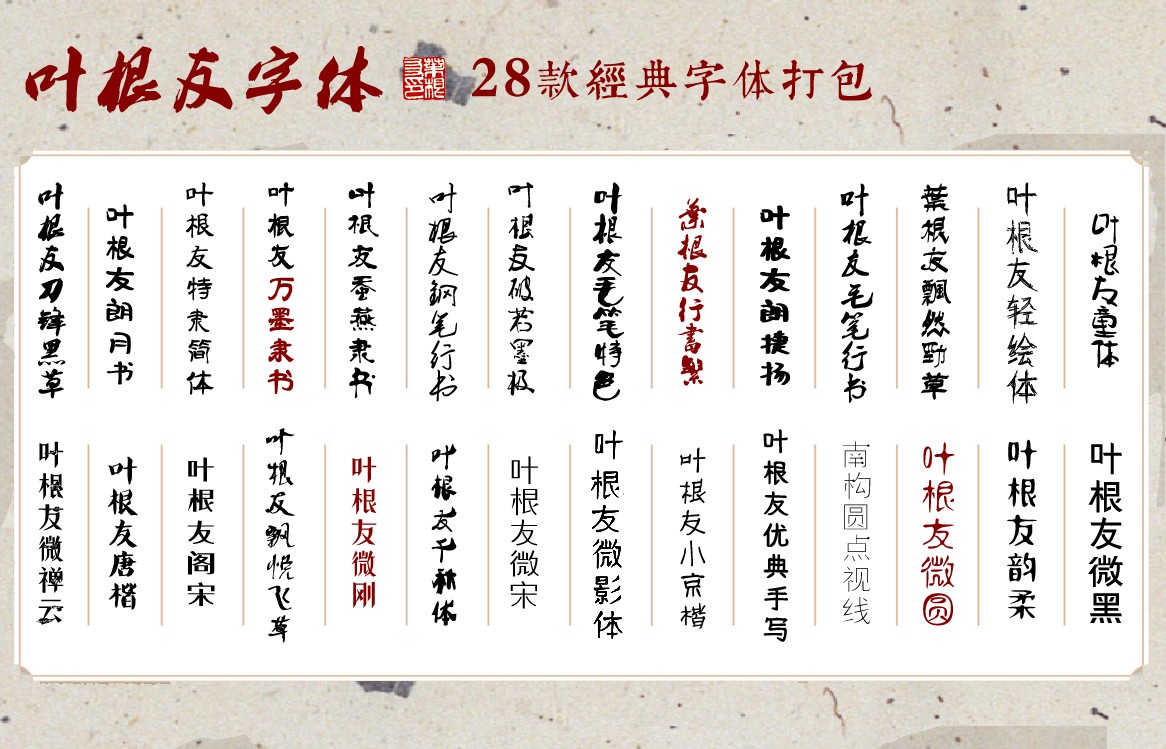 叶根友字体 28款經典字体打包
叶根友刀锋黑草
叶根友朗月书
叶根友特隶简体
叶根友万墨隶书
叶根友蚕燕隶书
叶根友钢笔行书
叶根友破若墨极
叶根友毛笔特色
葉根友行書繁
叶根友朗捷扬
叶根友毛笔行书
葉根友飄然勁草
叶根友轻绘体
叶根友童体
叶根友微禅云
叶根友唐楷
叶根友阁宋
叶根友飘悦飞草
叶根友微刚
叶根友千秋体
叶根友微宋
叶根友微影体
叶根友小京楷
叶根友优典手写
南构圆点视线
叶根友微圆
叶根友韵柔
叶根友微黑